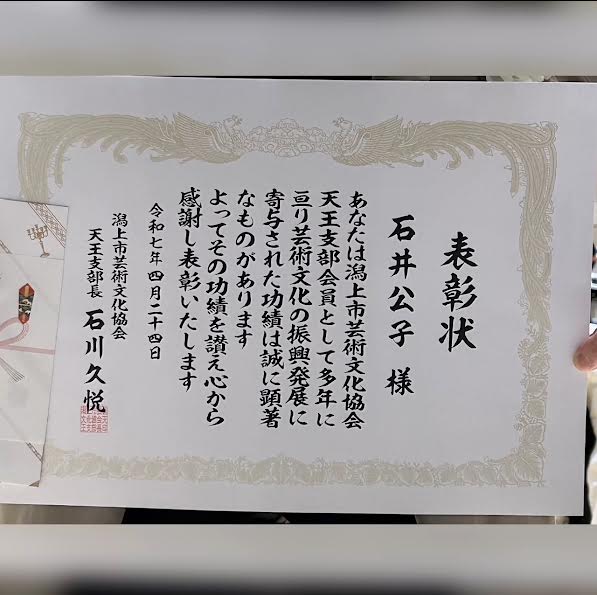 表彰状
石井公子 様
あなたは潟上市芸術文化協会
天王支部会員として多年に
亘り芸術文化の振興発展に
寄与された功績は誠に顕著
なものがあります
よってその功績を讃え心から
感謝し表彰いたします
令和七年四月二十四日
潟上市芸術文化協会
天王支部長 石川久悦